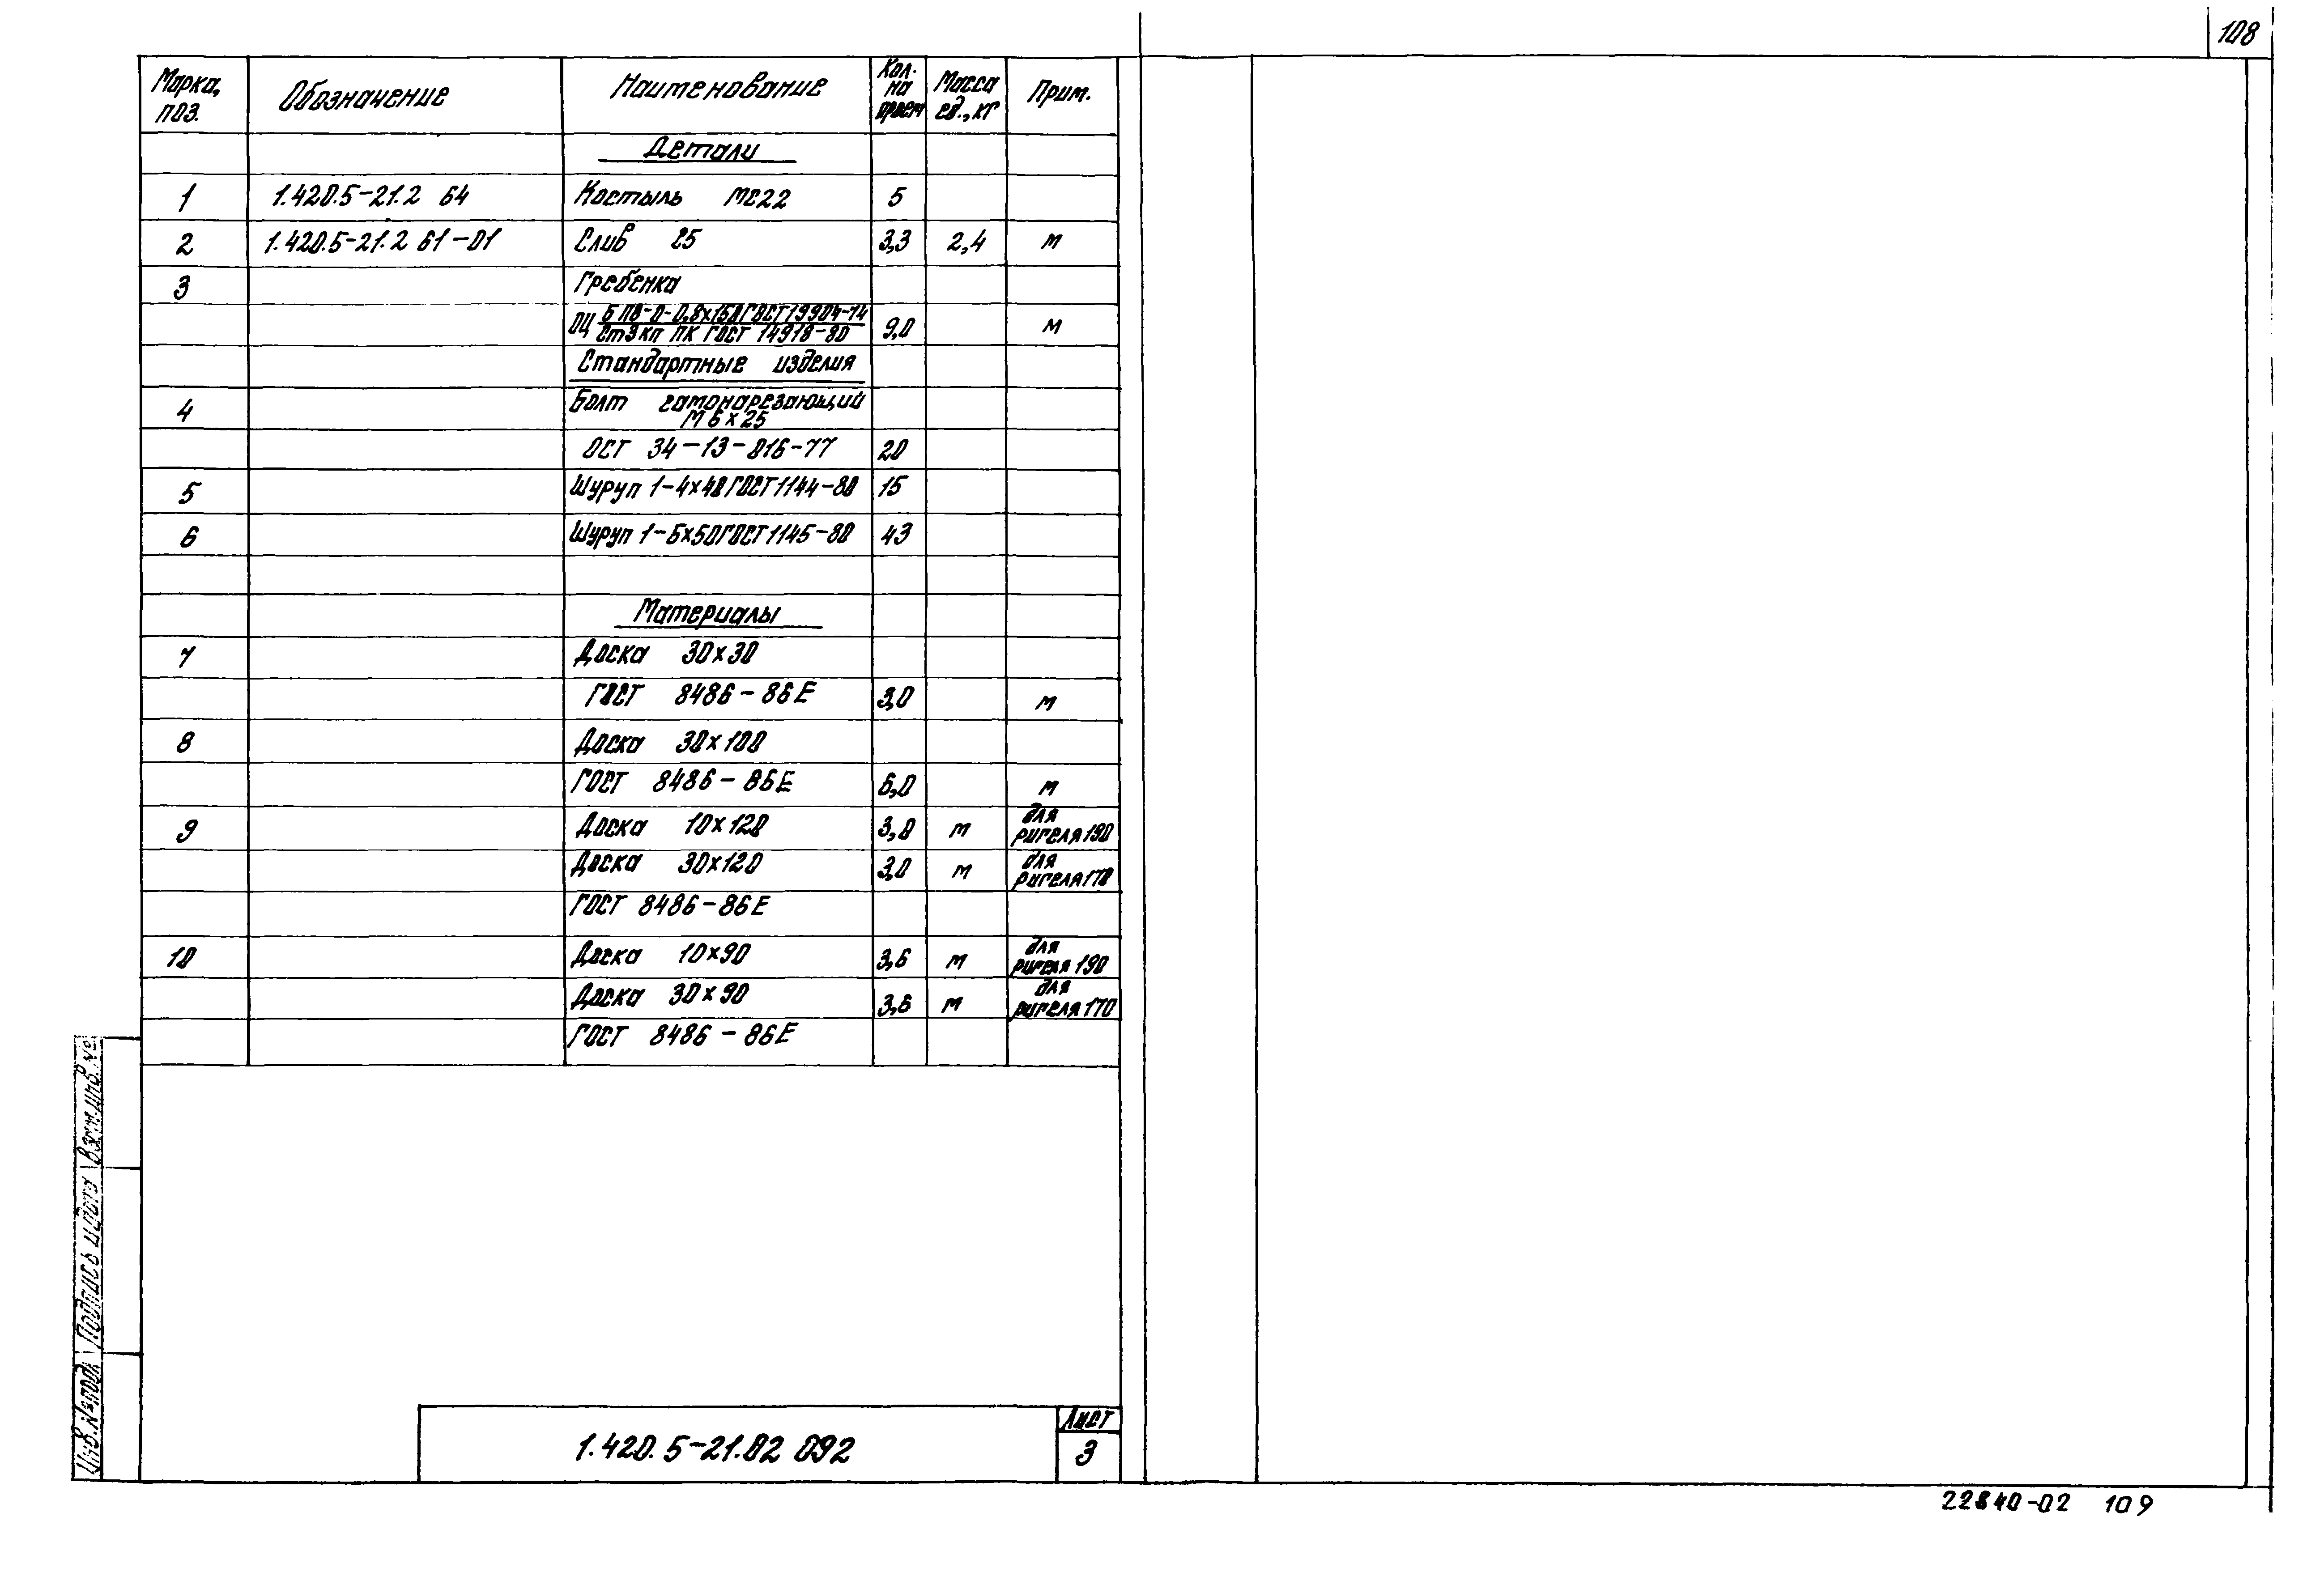 108
Марка, поз. Обозначение Наименование Кол. на проем Масса ед., кг Прим.
Детали
1 1.420.5-21.2 64 Костыль МС22 5
2 1.420.5-21.2 61-01 Слив С5 3,3 2,4 м
3 Гребенка
ОЦ Б ПВ-О-0,8х150 ГОСТ 19904-74
Ст3кп ПК ГОСТ 14918-80 9,0 м
Стандартные изделия
4 Болт самонарезающий
М6х25
ОСТ 34-13-016-77 20
5 Шуруп 1-4х40 ГОСТ 1144-80 15
6 Шуруп 1-5х50 ГОСТ 1145-80 43
Материалы
7 Доска 30х30
ГОСТ 8486-86Е 3,0 м
8 Доска 30х100
ГОСТ 8486-86Е 6,0 м
9 Доска 10х120 3,0 м для ригеля 190
Доска 30х120 3,0 м для ригеля 170
ГОСТ 8486-86Е
10 Доска 10х90 3,6 м для ригеля 190
Доска 30х90 3,6 м для ригеля 170
ГОСТ 8486-86Е
Инв.№подл. Подпись и дата Взам.инв.№
1.420.5-21.02 092
Лист
3
22840-02 109